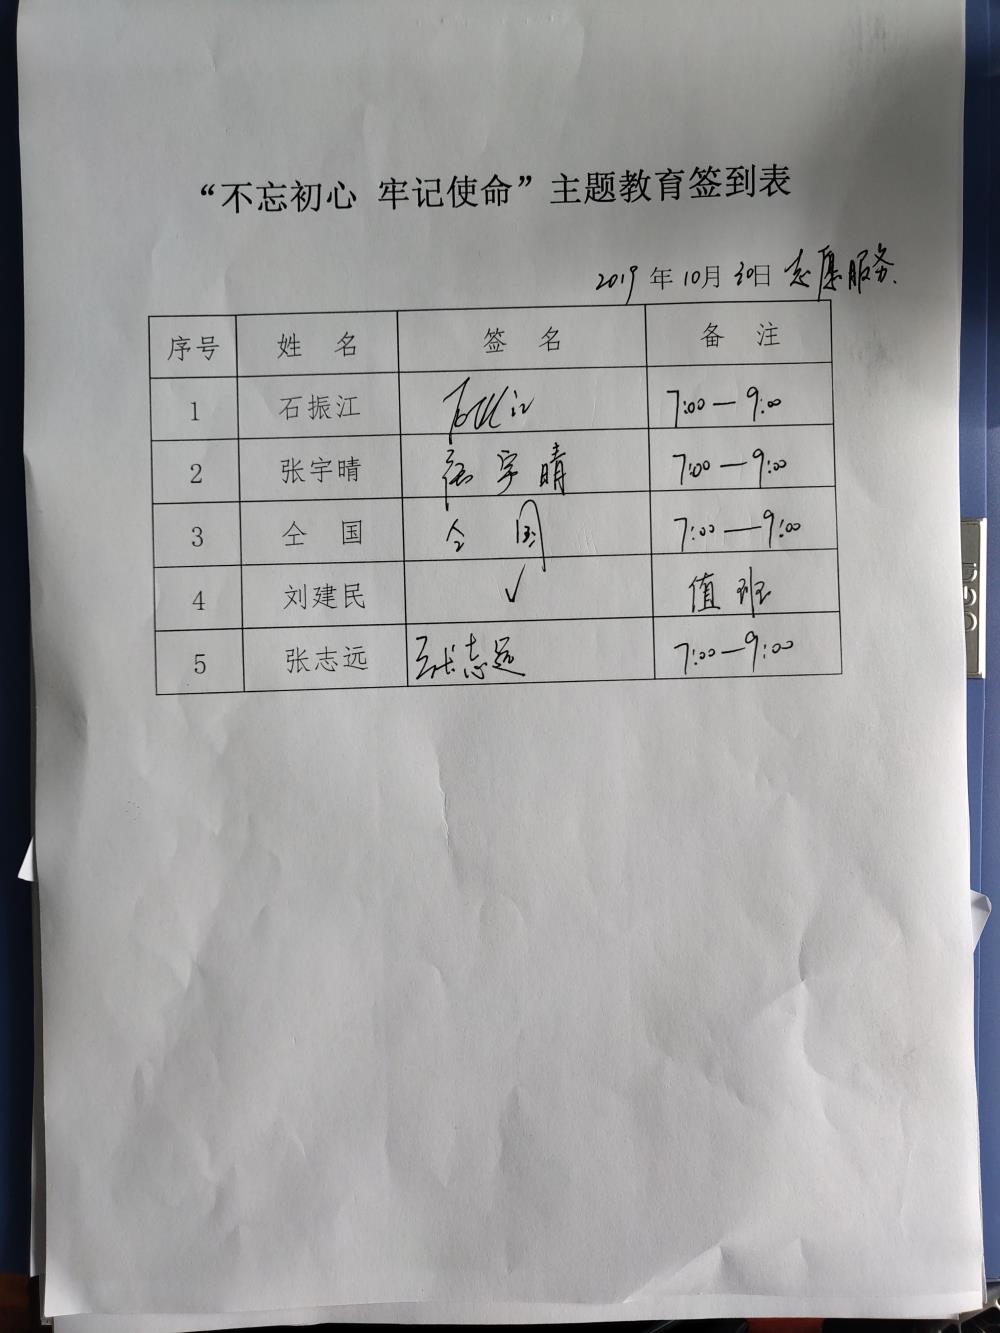 “不忘初心 牢记使命”主题教育签到表
2019年10月30日 志愿服务.
序号 姓 名 签 名 备 注
1 石振江 石振江 7:00—9:00
2 张宇晴 张宇晴 7:00—9:00
3 仝 国 仝 国 7:00—9:00
4 刘建民 ✓ 值班
5 张志远 张志远 7:00—9:00